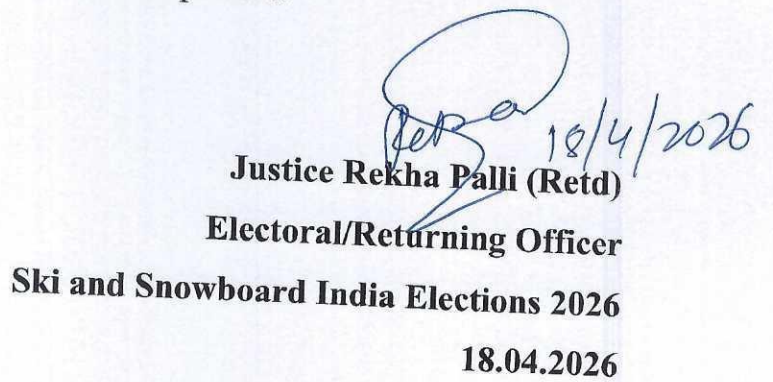 Rekha 18/4/2026
Justice Rekha Palli (Retd)
Electoral/Returning Officer
Ski and Snowboard India Elections 2026
18.04.2026